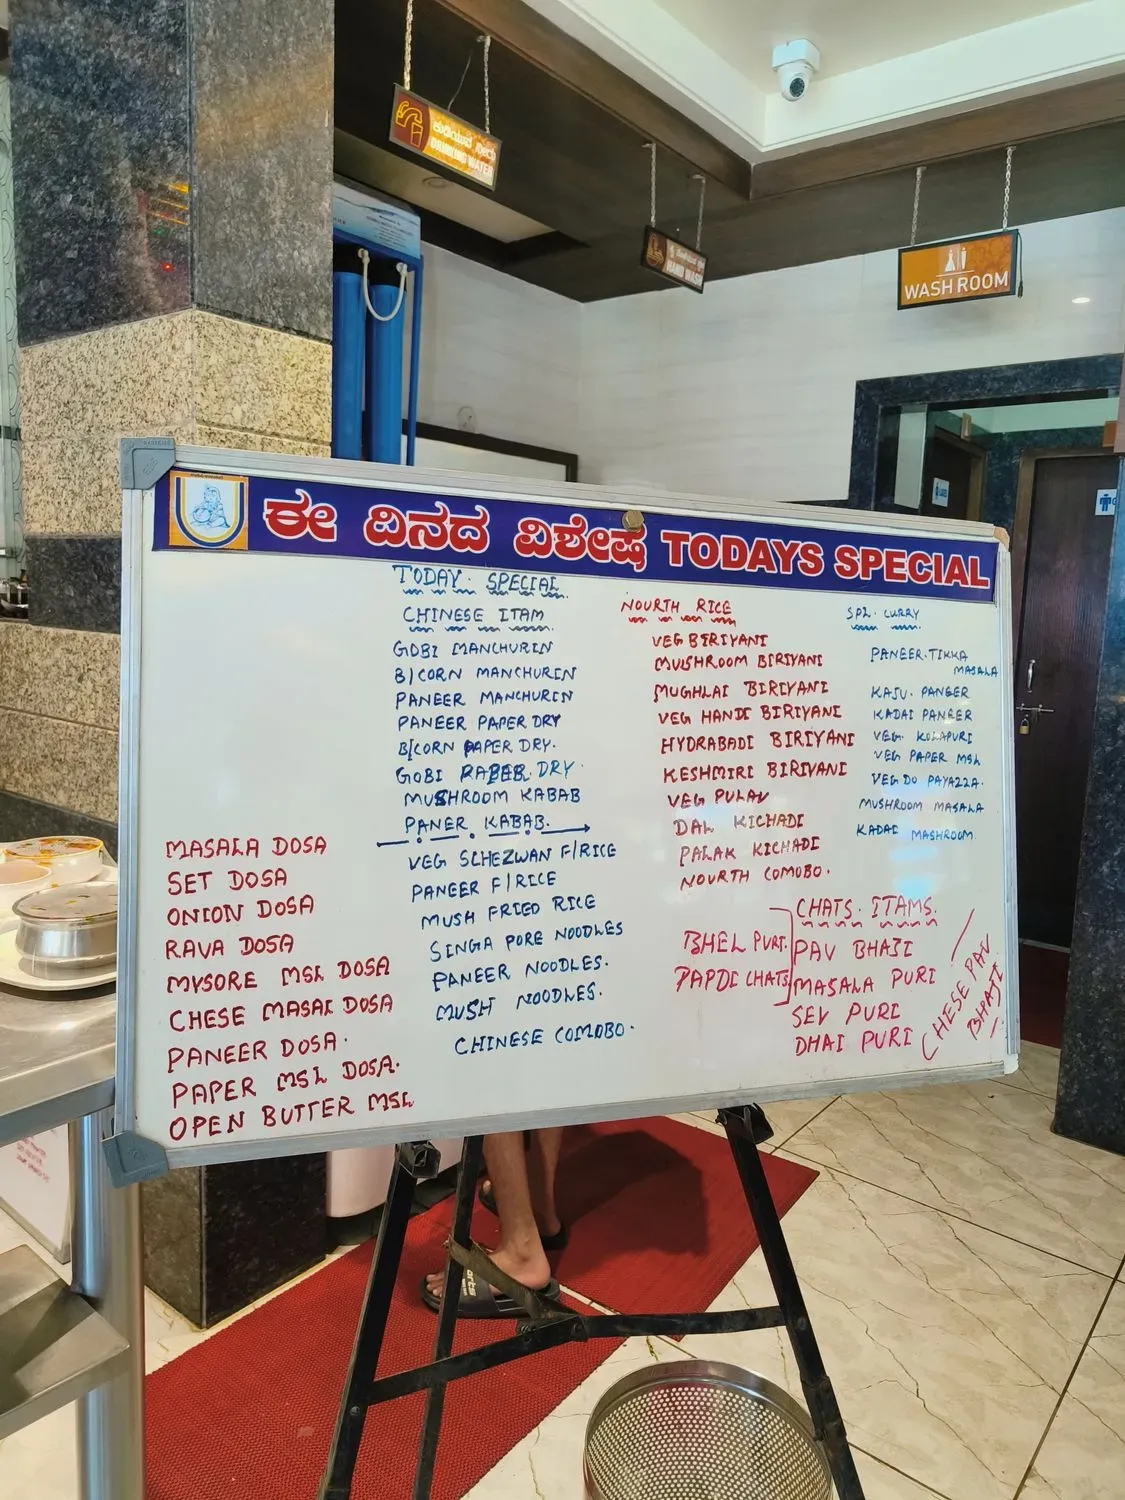 ಕುಡಿಯುವ ನೀರು
DRINKING WATER
HAND WASH
WASH ROOM
ಈ ದಿನದ ವಿಶೇಷ TODAYS SPECIAL
TODAY. SPECIAL
CHINESE ITAM
GOBI MANCHURIN
B/CORN MANCHURIN
PANEER MANCHURIN
PANEER PAPER DRY
B/CORN PAPER DRY.
GOBI PAPER DRY
MUSHROOM KABAB
PANER KABAB.
VEG SCHEZWAN F/RICE
PANEER F/RICE
MUSH FRIED RICE
SINGA PORE NOODLES
PANEER NOODLES.
MUSH NOODLES.
CHINESE COMOBO.
MASALA DOSA
SET DOSA
ONION DOSA
RAVA DOSA
MYSORE MSL DOSA
CHESE MASAL DOSA
PANEER DOSA.
PAPER MSL DOSA.
OPEN BUTTER MSL
NOURTH RICE
VEG BIRIYANI
MUSHROOM BIRIYANI
MUGHLAI BIRIYANI
VEG HANDI BIRIYANI
HYDRABADI BIRIYANI
KESHMIRI BIRIYANI
VEG PULAV
DAL KICHADI
PALAK KICHADI
NOURTH COMOBO.
SPL. CURRY
PANEER.TIKKA
MASALA
KAJU. PANEER
KADAI PANEER
VEG. KOLAPURI
VEG PAPER MSL
VEG DO PAYAZZA.
MUSHROOM MASALA
KADAI MASHROOM
CHATS. ITAMS.
BHEL PURI.
PAPDI CHATS
PAV BHAJI
MASALA PURI
SEV PURI
DHAI PURI
CHESE PAV
BHAJI